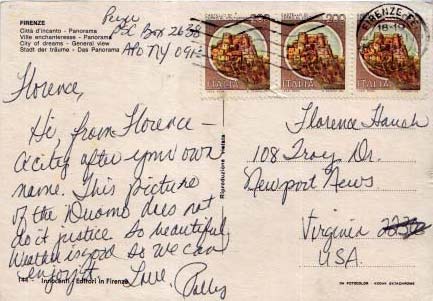 FIRENZE
Città d'incanto - Panorama
Ville enchanteresse - Panorama
City of dreams - General view
Stadt der träume - Das Panorama
Box 2638
APO NY
Florence,
Hi, from Florence –
a city after your own
name. This picture
of the Duomo does not
do it justice. So beautiful
Weather is good so we can
enjoy it. Love,
144 - Innocenti - Editori in Firenze
Riproduzione vietata
200 200 200
ITALIA ITALIA ITALIA
FIRENZE
18-
Florence
108 Troy Dr.
Newport News
Virginia
USA.
DA FOTOCOLOR KODAK EKTACHROME